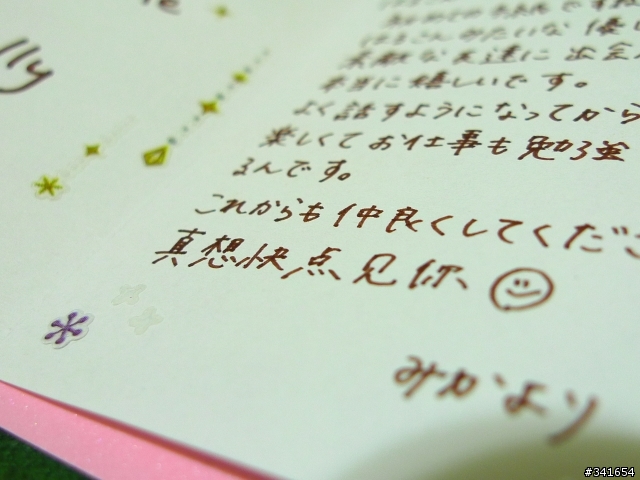 lly
素敵な友達に出会
本当に嬉しいです。
よく話すようになってから
楽しくてお仕事も勉強
るんです。
これからも仲良くしてくださ
真想快点见你
みかより
#341654